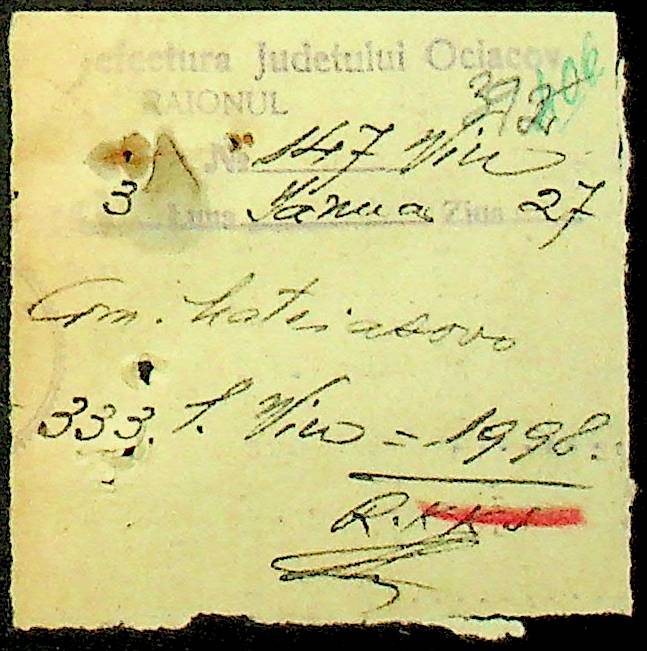 efectura Judetului Ociacov
RAIONUL
392
No 147 Vin
3 Luna Ianua Ziua 27
Com. Matiasovo
333. l. Vin = 19.98.
R.KKS